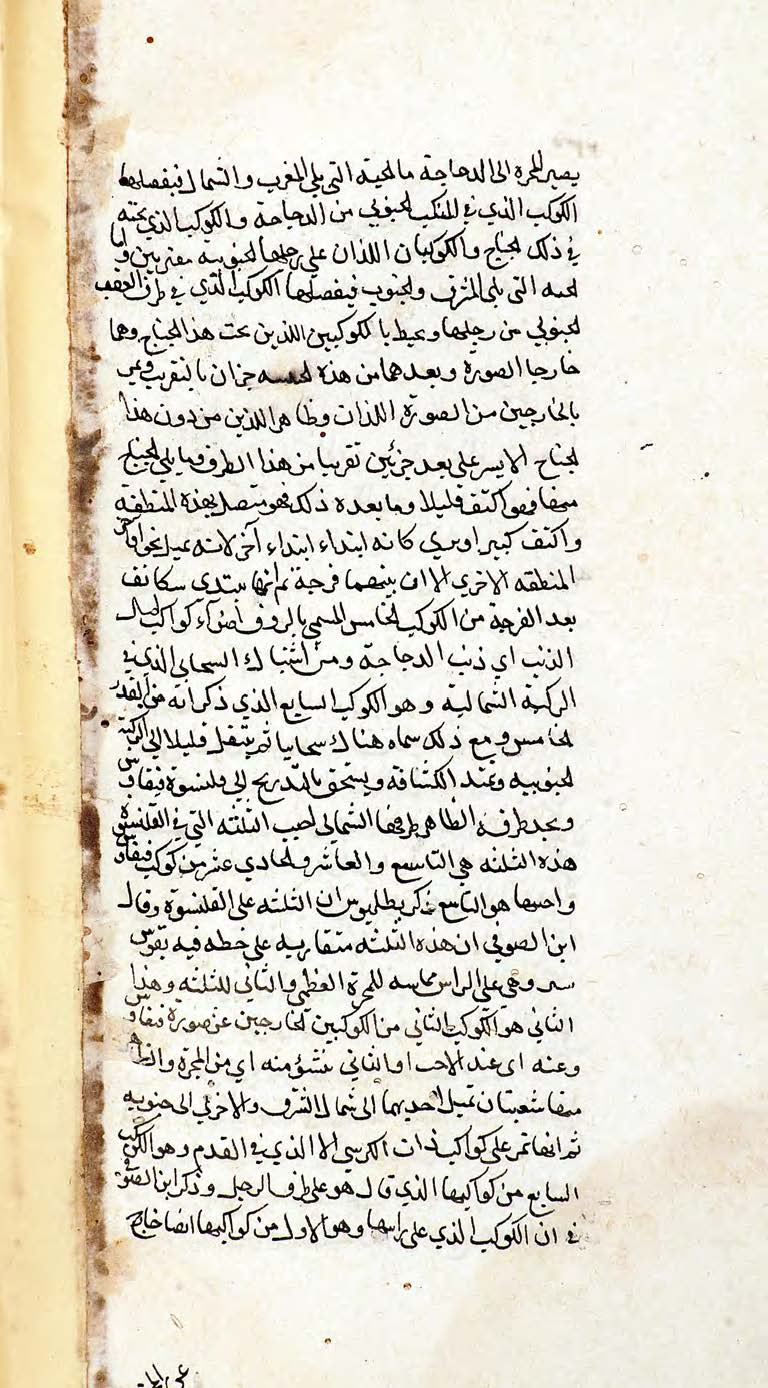 يصير المجرة الى الدجاجة فالجهة التي يلي المغرب والشمال فيفصلها
الكوكب الذي في المنكب الجنوبي من الدجاجة والكوكب الذي تحته
في ذلك الجناح والكوكبان اللذان على رجلها الجنوبية مقتربين واما
الجهة التي يلي المشرق والجنوب فيفصلها الكوكب الذي في طرف العقب
الجنوبي من رجلها ويحيط بالكوكبين اللذين تحت هذا الجناح وهما
خارجا الصورة وبعدهما من هذه جزان بالتقريب
بالخارجين من الصورة اللذان وظاهر اللذين من دون هذا
الجناح الايسر على بعد جزئين تقريبا من هذا الطرف وما يلي الجناح
منها فهو اكثف قليلا وما بعده ذلك فهو متصل بهذه المنطقة
واكثف كبير او يرى كانه ابتداء ابتداء آخر لانه يميل نحو
المنطقه الاخرى الا ان بينهما فرجة ثم انها يبتدي
بعد الفرجة من الكوكب الخامس المسمي بالروف اضواء كواكب
الذنب اي ذنب الدجاجة ومن اشباك السحابي الذي في
الركبة الشمالية وهو الكوكب السابع الذي ذكر انه من القدر
الخامس ومع ذلك سماه هناك سحابيا ثم ينتقل قليلا الى الركبة
الجنوبيه وعند الكثافة ويستحق بالتدريج الى قلنسوة قيقاوس
ويحد طرفه الظاهر طرفها الشمالي احيب الثلثه التي في القلنسوة
هذه الثلثه هي التاسع والعاشر والحادي عشر من كوكب قيقاوس
واحبها هو التاسع ذكر بطلميوس ان الثلثه على القلنسوة وقال
ابن الصوفي ان هذه الثلثه متقاربه على خطه فيه تقوس
وهي على الراس مماسه للمجرة العظمى والثاني للثلثه وهذا
الثاني هو الكوكب الثاني من الكوكبين الخارجين عن صورة قيقاوس
وعنه اى عند الاحب او الثاني ينشؤ منه اي من المجرة
منها شعبتان تميل احديهما الى شمال الشرق والاخرى الى جنوبيه
ثم انها تمر على كواكب ذات الكرسي الا الذي في القدم وهو الكوكب
السابع من كواكبها الذي قال هو على طرف الرجل وذكر ابن الصو
في ان الكوكب الذي على راسها وهو الاول من كواكبها ايضا خارج